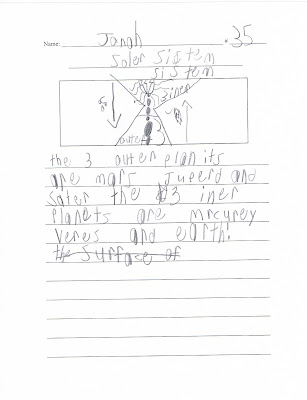 Name: Janah # 35
Soler Sistem
sistem
3 iner
outer 3
the 3 outer planits
are mars Jueerd and
Sater the 3 iner
Planets are Mrcyrey
Veres and earth!
the Surface of